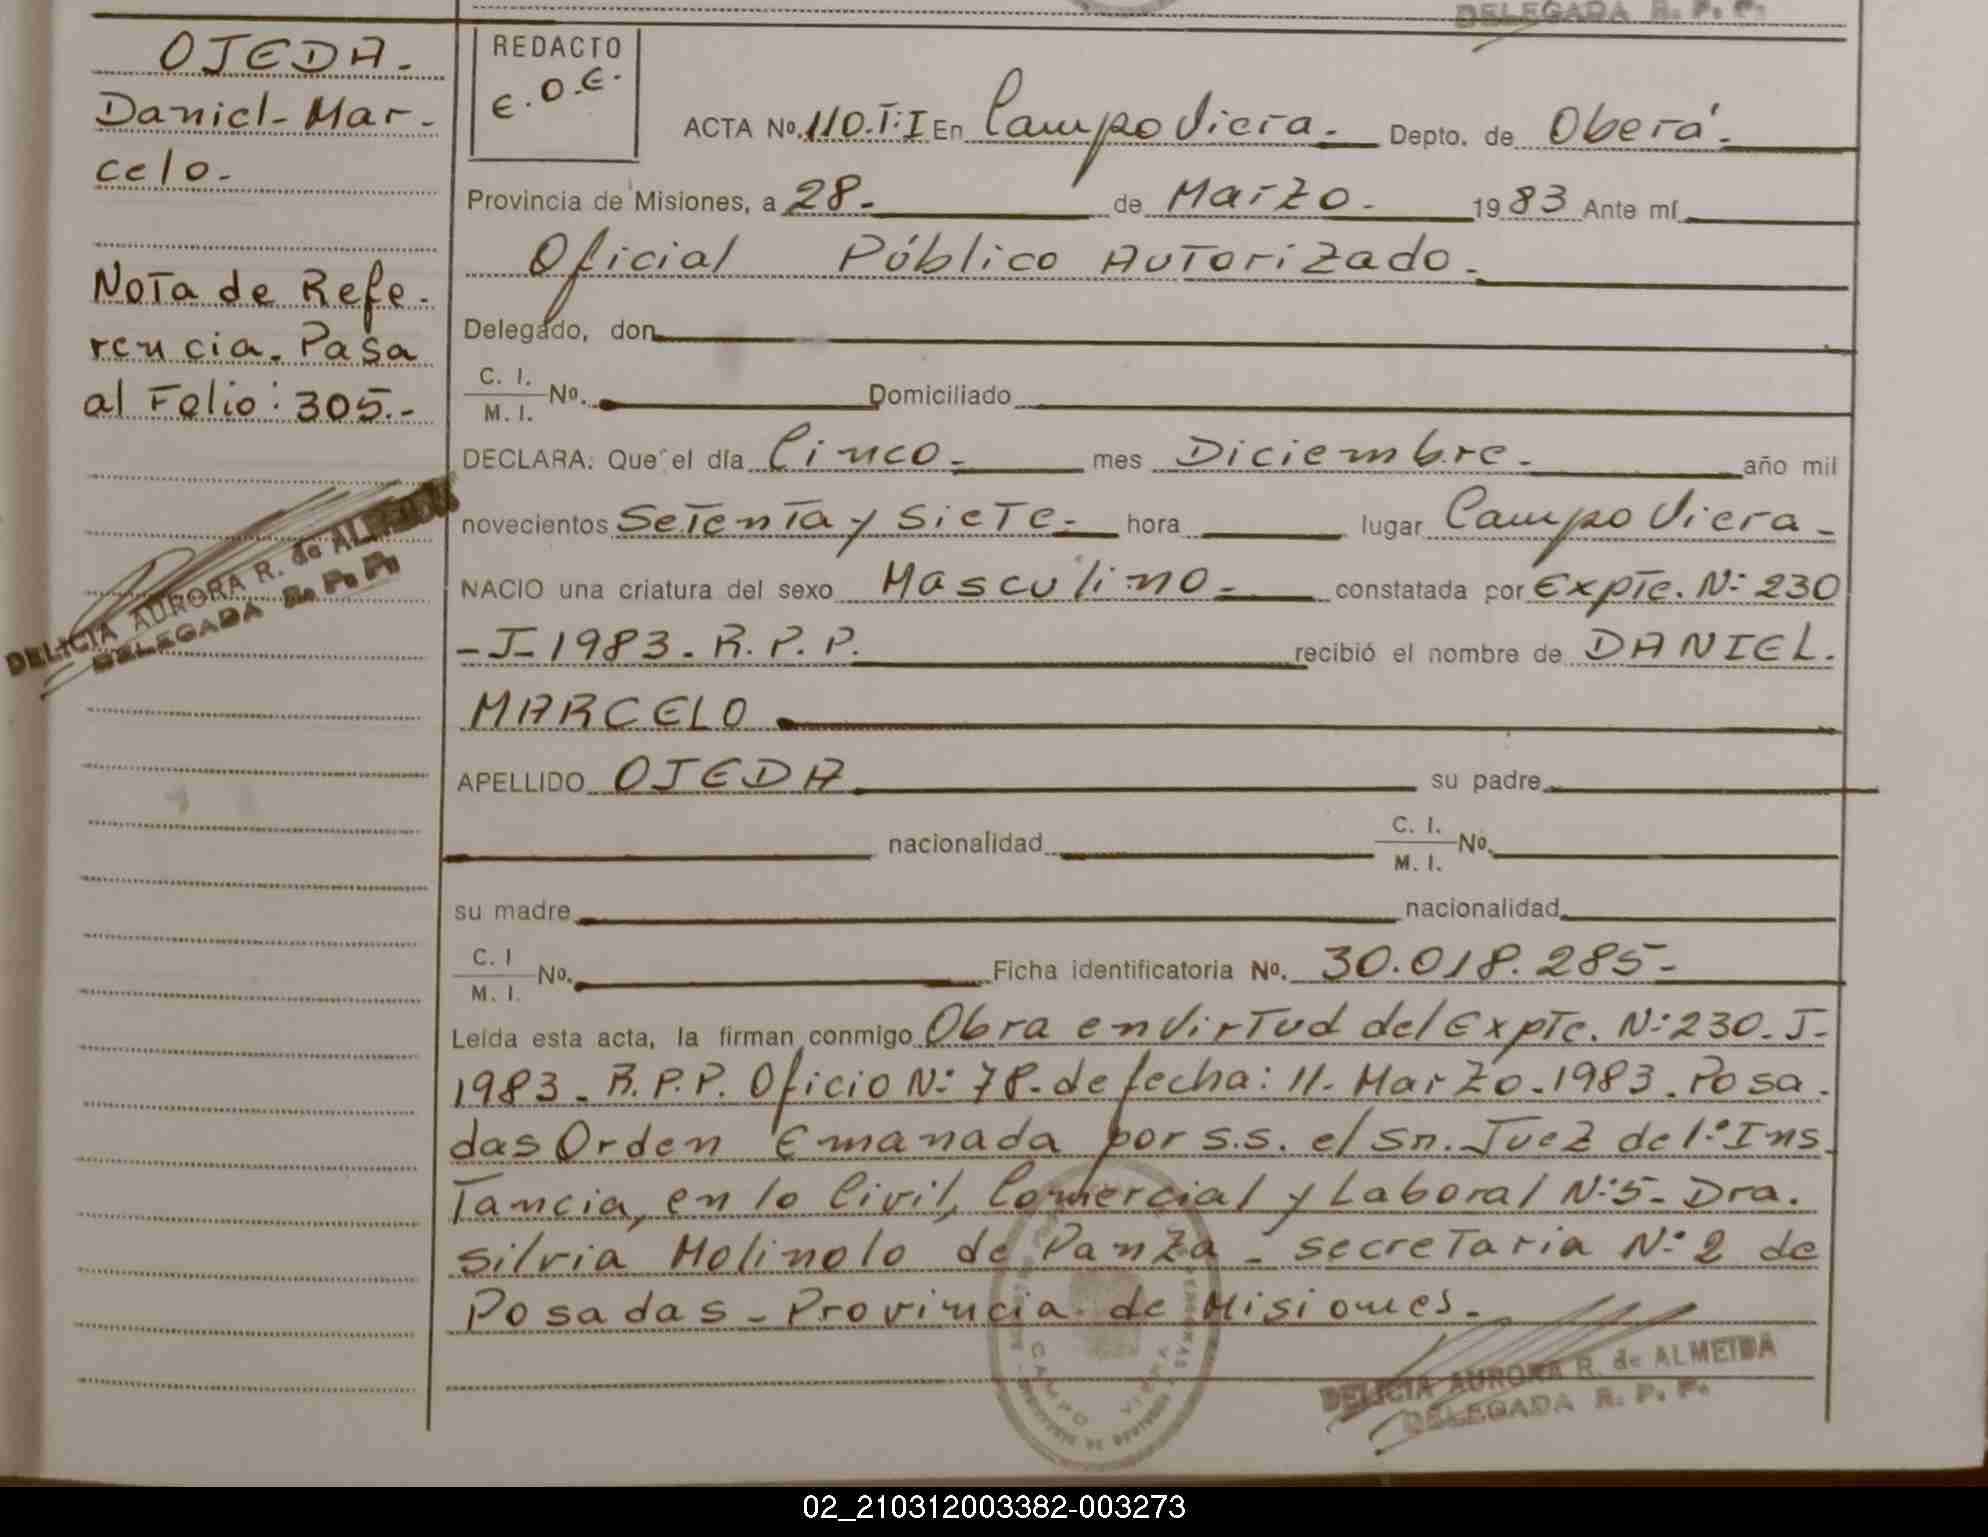 DELEGADA R. P. P.
OJEDA.
Daniel-Mar-
celo.-
Nota de Refe-
rencia. Pasa
al Folio: 305.-
DELICIA AURORA R. de ALMEIDA
DELEGADA R. P. P.
REDACTO
E.O.E.
ACTA Nº. 110.T:I En Campo Viera.- Depto. de Oberá.-
Provincia de Misiones, a 28.- de Marzo.- 19 83 Ante mí
Oficial Público Autorizado.-
Delegado, don
C. I.
M. I. Nº. Domiciliado
DECLARA: Que el día Cinco.- mes Diciembre.- año mil
novecientos Setenta y Siete.- hora lugar Campo Viera.-
NACIO una criatura del sexo Masculino.- constatada por Expte. Nº: 230
-J-1983. R. P. P. recibió el nombre de DANIEL.
MARCELO
APELLIDO OJEDA su padre
nacionalidad C. I.
M. I. Nº.
su madre nacionalidad
C. I
M. I. Nº. Ficha identificatoria Nº. 30.018.285.-
Leída esta acta, la firman conmigo Obra en virtud del Expte. N:230. J-
1983. R.P.P. Oficio N: 78. de fecha: 11. Marzo. 1983. Posa.
das Orden Emanada por s.s. el Sn. Juez de 1.ª Ins
tancia, en lo Civil, Comercial y Laboral N:5- Dra.
Silvia Molinolo de Panza - secretaria N: 2 de
Posadas - Provincia de Misiones.-
CAMPO VIERA
DELICIA AURORA R. de ALMEIDA
DELEGADA R. P. P.
02_210312003382-003273